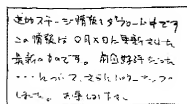 追加ステージ情報をダウンロード中です
この情報は〇月×日に更新された
最新のものです。前回好評だった
・・・に加って、さらにパワーアップ
しました。お楽しみ下さい